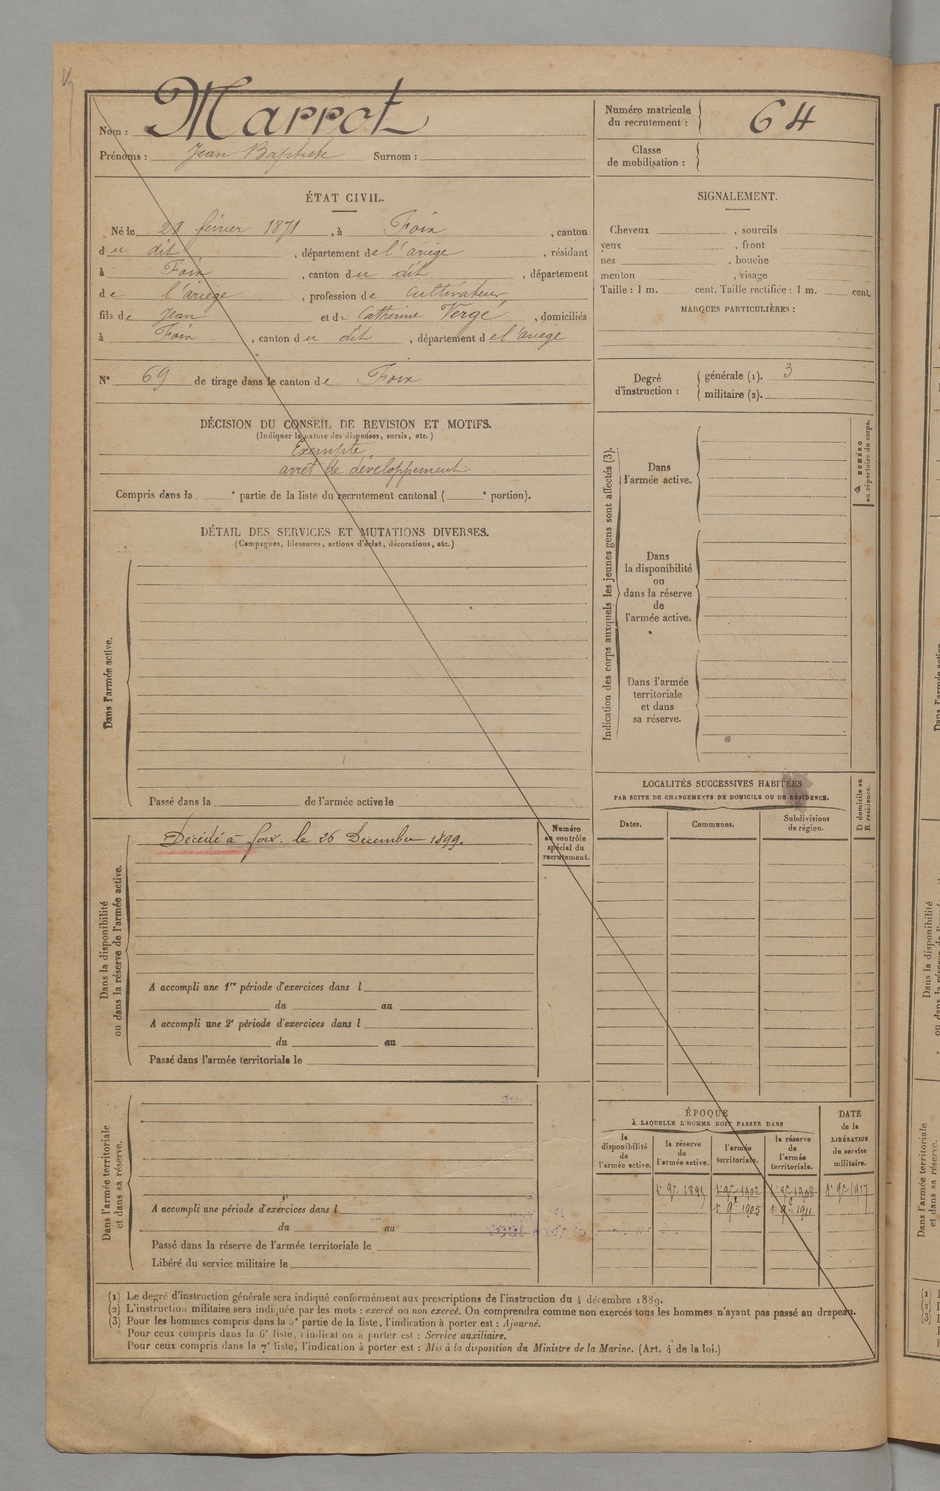 Nom : Marrot
Prénoms : Jean Baptiste Surnom :
Numéro matricule du recrutement : 64
Classe de mobilisation :
ÉTAT CIVIL.
Né le 28 février 1871, à Foix, canton
du dit, département de l'ariège, résidant
à Foix, canton du dit, département
de l'ariège, profession de cultivateur
fils de Jean et de Catherine Vergé, domiciliés
à Foix, canton du dit, département de l'ariège
N° 69 de tirage dans le canton de Foix
SIGNALEMENT.
Cheveux , sourcils
yeux , front
nez , bouche
menton , visage
Taille : 1 m. cent. Taille rectifiée : 1 m. cent.
MARQUES PARTICULIÈRES :
Degré d'instruction :
générale (1). 3
militaire (2).
DÉCISION DU CONSEIL DE REVISION ET MOTIFS.
(Indiquer la nature des dispenses, sursis, etc.)
Exempté
arrêt de développement
Compris dans la e partie de la liste du recrutement cantonal ( e portion).
DÉTAIL DES SERVICES ET MUTATIONS DIVERSES.
(Campagnes, blessures, actions d'éclat, décorations, etc.)
Dans l'armée active.
Passé dans la de l'armée active le
Indication des corps auxquels les jeunes gens sont affectés (3).
Dans
l'armée active.
Dans
la disponibilité
ou
dans la réserve
de
l'armée active.
Dans l'armée
territoriale
et dans
sa réserve.
NUMÉRO
au répertoire du corps.
LOCALITÉS SUCCESSIVES HABITÉES
PAR SUITE DE CHANGEMENTS DE DOMICILE OU DE RÉSIDENCE.
Dates.
Communes.
Subdivisions
de région.
D domicile ou
R résidence.
Dans la disponibilité
ou dans la réserve de l'armée active.
Décédé à foix. le 26 Décembre 1899.
Numéro
au contrôle
spécial du
recrutement.
A accompli une 1re période d'exercices dans l
du au
A accompli une 2e période d'exercices dans l
du au
Passé dans l'armée territoriale le
Dans l'armée territoriale
et dans sa réserve.
A accompli une période d'exercices dans l
du au
Passé dans la réserve de l'armée territoriale le
Libéré du service militaire le
ÉPOQUE
À LAQUELLE L'HOMME DOIT PASSER DANS
la
disponibilité
de
l'armée active.
la réserve
de
l'armée active.
l'armée
territoriale.
la réserve
de
l'armée
territoriale.
DATE
de la
LIBÉRATION
du service
militaire.
1er 9bre 1895
1er 9bre 1902
1er 9bre 1908
1er 9bre 1917
1er 9bre 1905
1er 9bre 1911
(1) Le degré d'instruction générale sera indiqué conformément aux prescriptions de l'instruction du 4 décembre 1889.
(2) L'instruction militaire sera indiquée par les mots : exercé ou non exercé. On comprendra comme non exercés tous les hommes n'ayant pas passé au drapeau.
(3) Pour les hommes compris dans la 5e partie de la liste, l'indication à porter est : Ajourné.
Pour ceux compris dans la 6e liste, l'indication à porter est : Service auxiliaire.
Pour ceux compris dans la 7e liste, l'indication à porter est : Mis à la disposition du Ministre de la Marine. (Art. 4 de la loi.)